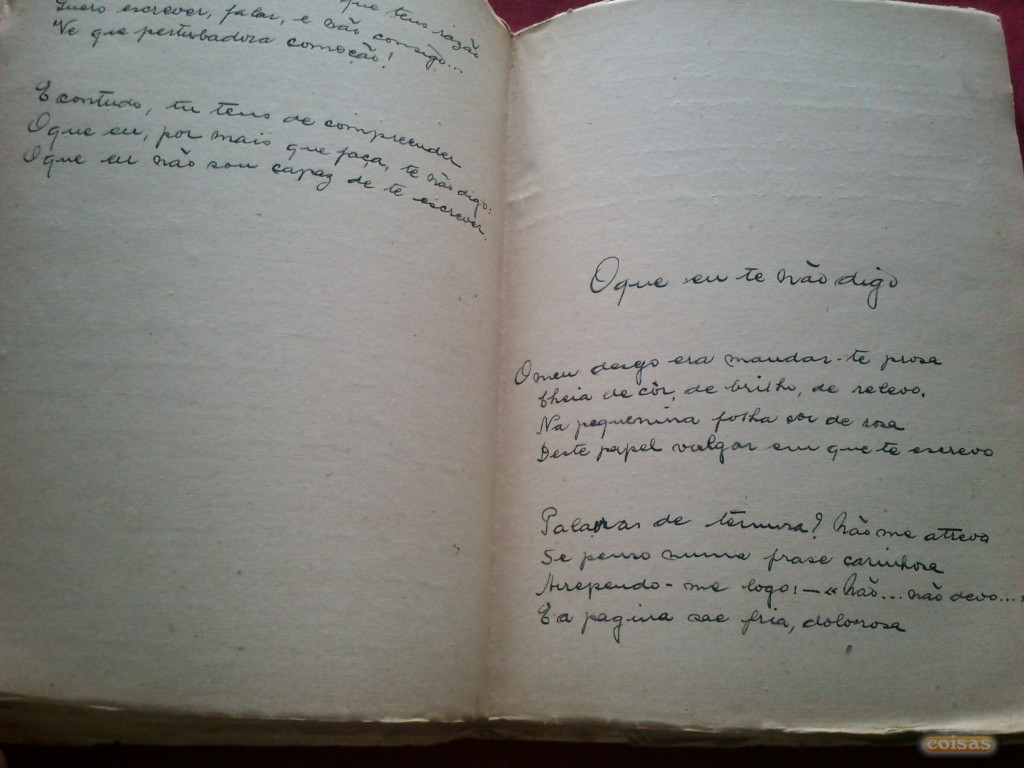 que tens razão
Quero escrever, falar, e não consigo...
Vê que perturbadora comoção!
E contudo, tu tens de compreender
O que eu, por mais que faça, te não digo:
O que eu não sou capaz de te escrever.
O que eu te não digo
O meu desejo era mandar-te prosa
Cheia de côr, de brilho, de relevo.
Na pequenina folha cor de rosa
Deste papel vulgar em que te escrevo
Palavras de ternura? Não me atrevo
Se penso numa frase carinhosa
Arrependo-me logo: — «Não... não devo...»
E a pagina sae fria, dolorosa
coisas